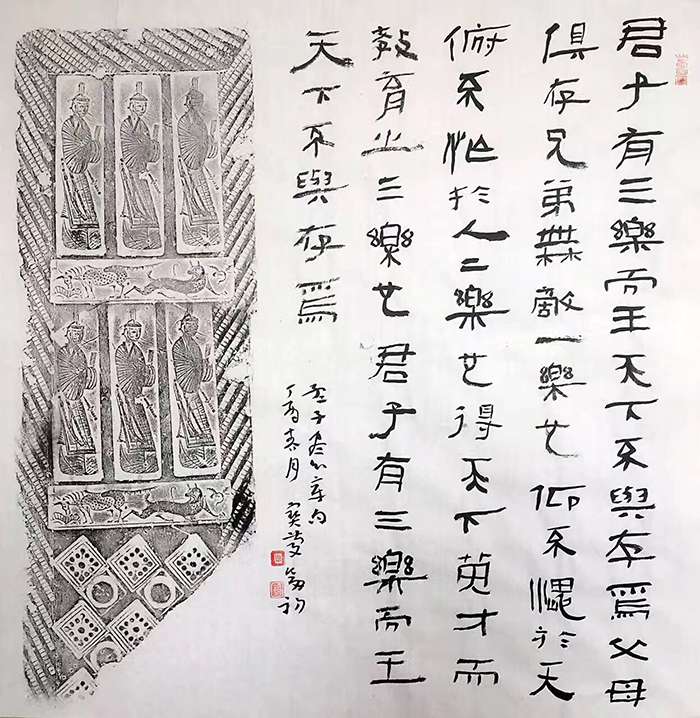 君子有三樂而王天下不與存焉父母
俱存兄弟無敵一樂也仰不愧於天
俯不怍於人二樂也得天下英才而
教育之三樂也君子有三樂而王
天下不與存焉
孟子盡心章句
丁酉春月